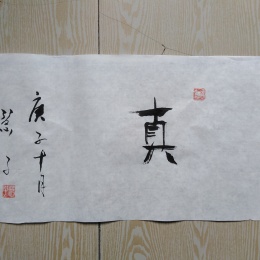 真
庚子十月